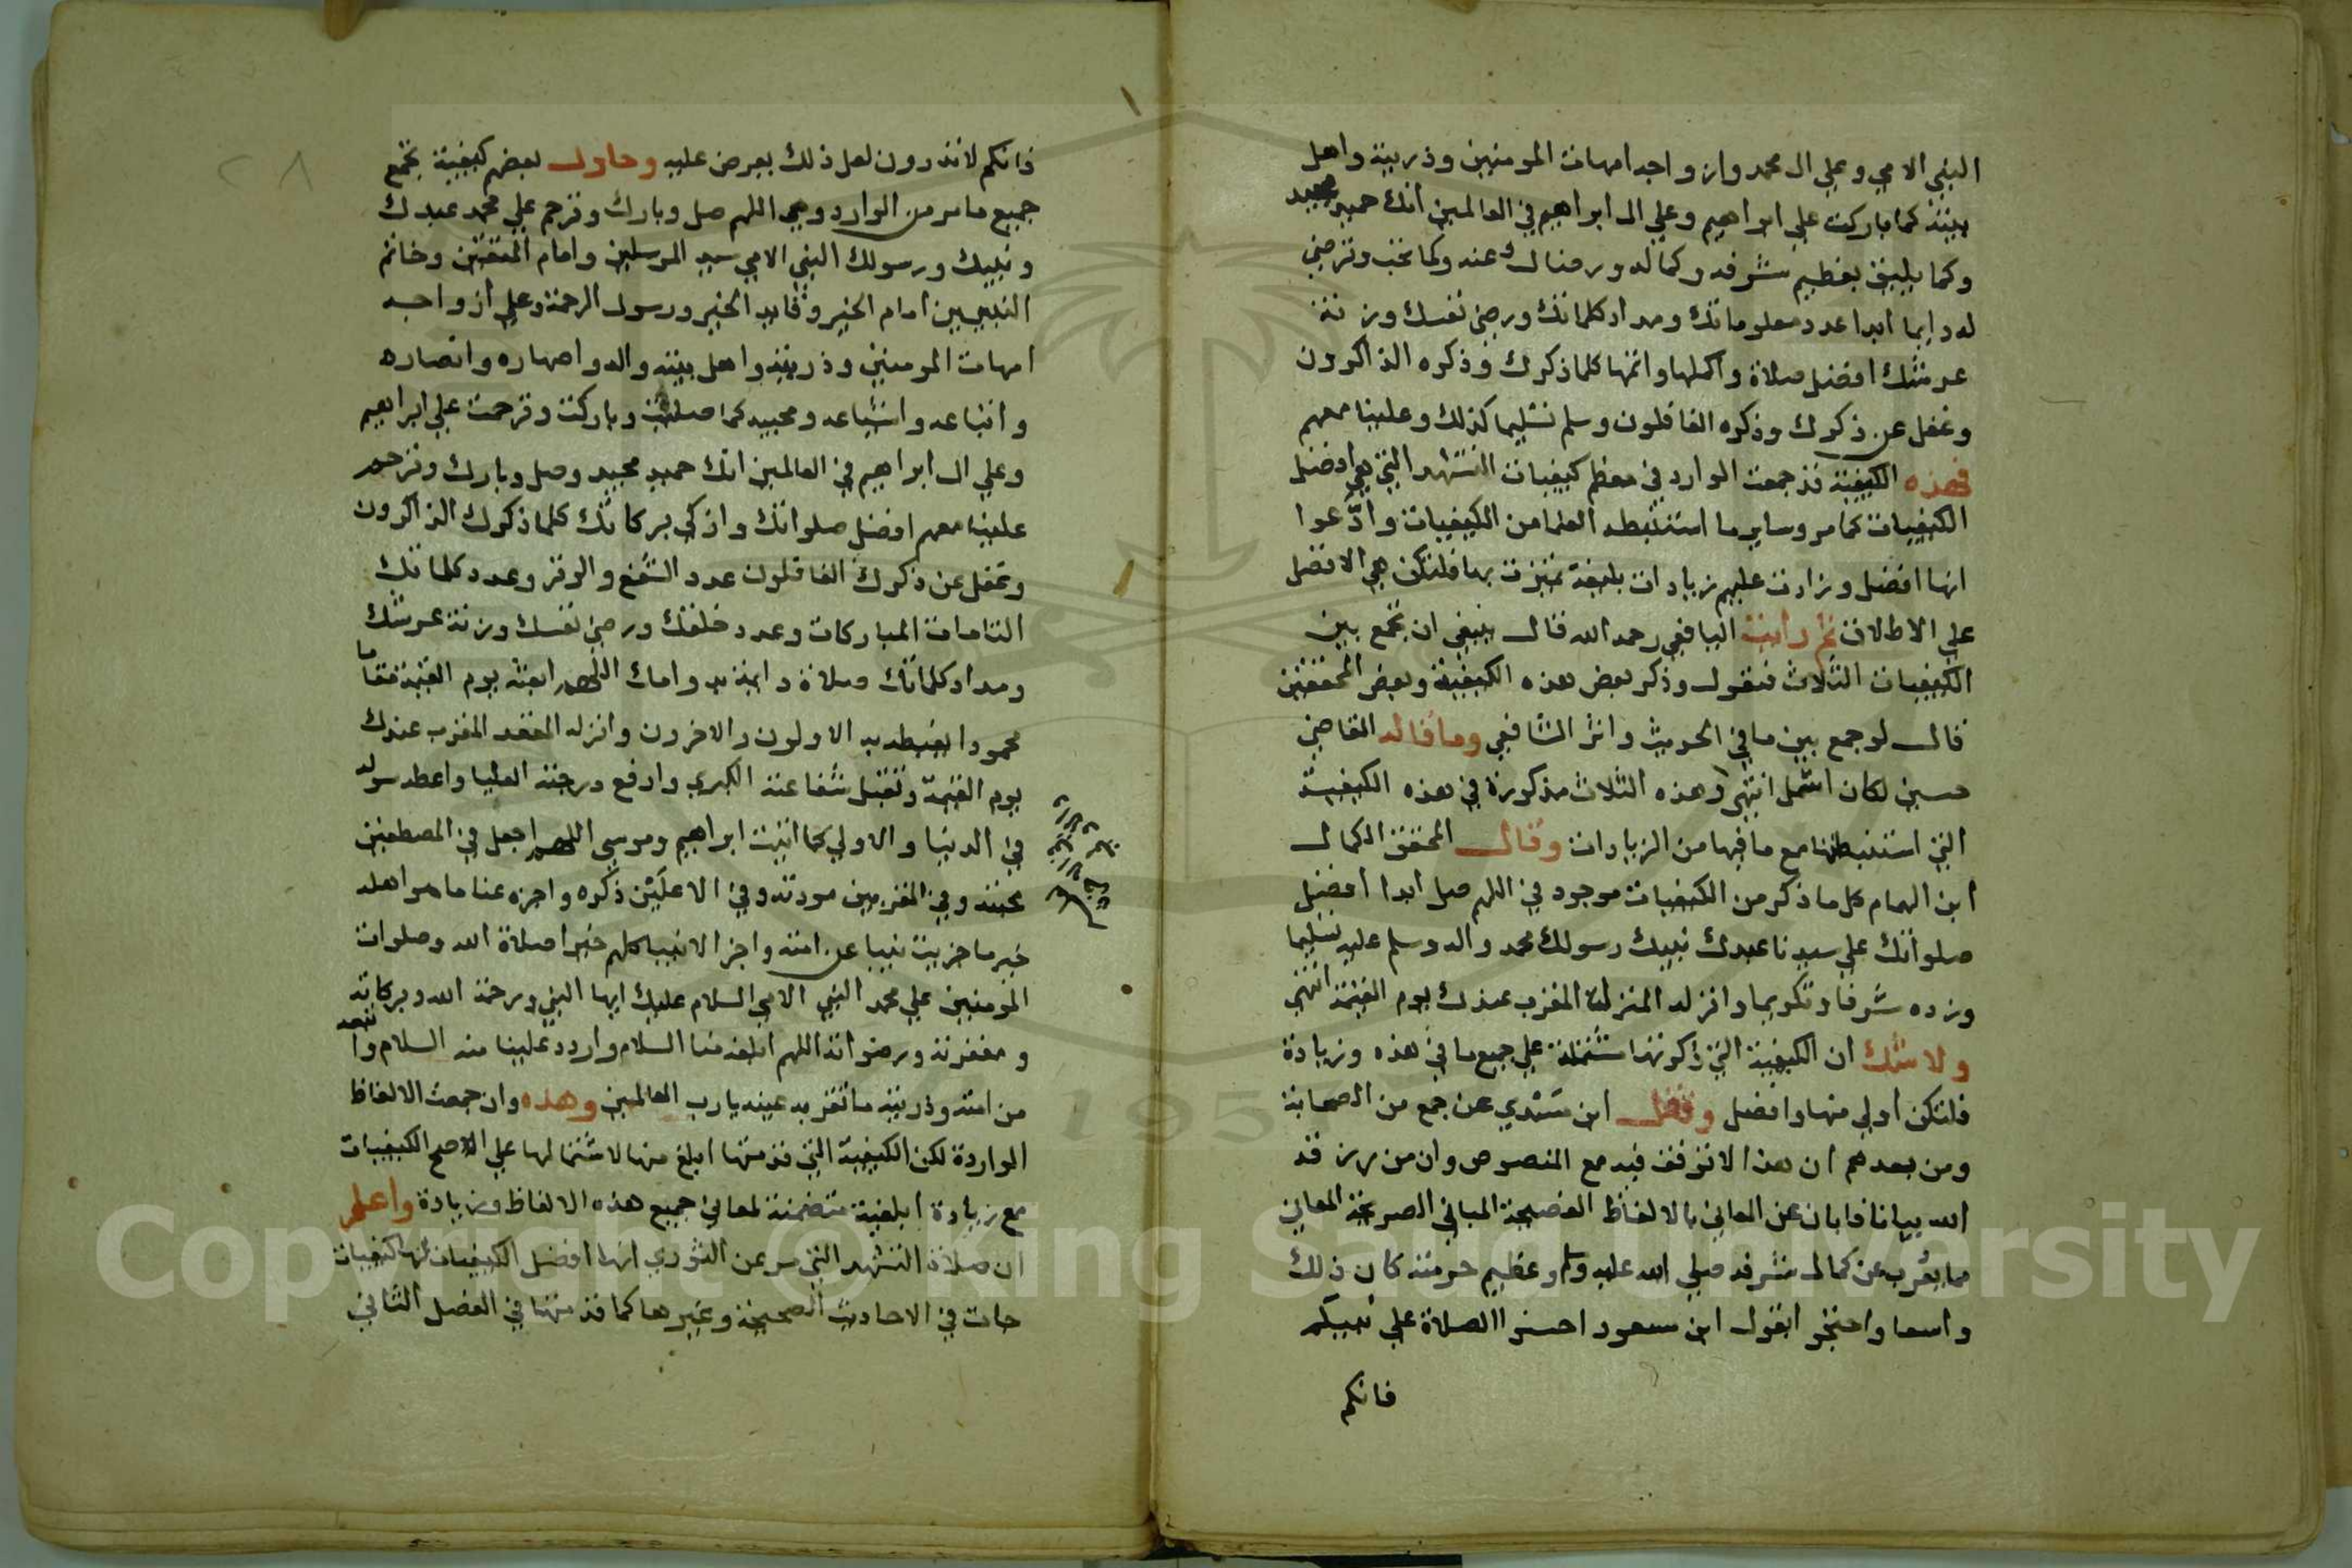 النبي الامي وعلي ال محمد وازواجه امهات المومنين وذريته واهل
بيته كما باركت علي ابراهيم وعلي ال ابراهيم في العالمين انك حميد مجيد
وكما يليق بعظيم شرفه وكماله ورضاك عنه وكما تحب وترضي
له دايما ابدا عدد معلوماتك ومداد كلماتك ورضي نفسك وزنة
عرشك افضل صلاة واكملها واتمها كلما ذكرك وذكره الذاكرون
وغفل عن ذكرك وذكره الغافلون وسلم تسليما كذلك وعلينا معهم
فهذه الكيفية قد جمعت الوارد في معظم كيفيات التشهد التي هي افضل
الكيفيات كما مر وساير ما استنبطه العلما من الكيفيات وادّعوا
انها افضل وزادت عليهم زيادات بليغة تميزت بها فلتكن هي الافضل
علي الاطلاق ثم رايت اليافعي رحمه الله قال ينبغي ان تجمع بين
الكيفيات الثلاث فتقول وذكر بعض هذه الكيفية وبعض المحققين
قال لو جمع بين ما في الحديث واثر الشافعي وما قاله القاضي
حسين لكان اشمل انتهي وهذه الثلاث مذكورة في هذه الكيفية
التي استنبطتها مع ما فيها من الزيادات وقال المحقق الكمال
ابن الهمام كل ما ذكر من الكيفيات موجود في اللهم صل ابدا افضل
صلواتك علي سيدنا عبدك نبيك رسولك محمد واله وسلم عليه تسليما
وزده شرفا وتكريما وانزله المنزلة المقرب عندك يوم القيمة انتهي
ولا شك ان الكيفية التي ذكرتها مشتملة علي جميع ما في هذه وزيادة
فلتكن اولي منها وافضل ونقل ابن مسدي عن جمع من الصحابة
ومن بعدهم ان هذا لا توقف فيه مع المنصوص وان من رزقه
الله بيانا فابان عن المعاني بالالفاظ الفصيحة المباني الصريحة المعاني
مما يعرب عن كمال شرفه صلي الله عليه وسلم وعظيم حرمته كان ذلك
واسعا واحتجوا بقول ابن مسعود احسنوا الصلاة علي نبيكم
فانكم
٢٨
فانكم لا تدرون لعل ذلك يعرض عليه وحاول بعضهم كيفية تجمع
جميع ما مر من الوارد وهي اللهم صل وبارك وترحم علي محمد عبدك
ونبيك ورسولك النبي الامي سيد المرسلين وامام المتقين وخاتم
النبيين امام الخير وقايد الخير ورسول الرحمة وعلي ازواجه
امهات المومنين وذريته واهل بيته واله واصهاره وانصاره
واتباعه واشياعه ومحبيه كما صليت وباركت وترحمت علي ابراهيم
وعلي ال ابراهيم في العالمين انك حميد مجيد وصل وبارك وترحم
علينا معهم افضل صلواتك وازكي بركاتك كلما ذكرك الذاكرون
وغفل عن ذكرك الغافلون عدد الشفع والوتر وعدد كلماتك
التامات المباركات وعدد خلقك ورضي نفسك وزنة عرشك
ومداد كلماتك صلاة دايمة بدوامك اللهم ابعثه يوم القيمة مقاما
محمودا يغبطه به الاولون والاخرون وانزله المقعد المقرب عندك
يوم القيمة وتقبل شفاعته الكبري وارفع درجته العليا واعطه سوله
في الدنيا والاولي كما اتيت ابراهيم وموسي اللهم اجعل في المصطفين
محبته وفي المقربين مودته وفي الاعلين ذكره واجزه عنا ما هو اهله
خير ما جزيت نبيا عن امته واجز الانبيا كلهم خيرا صلاة الله وصلوات
المومنين علي محمد النبي الامي السلام عليك ايها النبي ورحمة الله وبركاته
ومغفرته ورضوانه اللهم ابلغه منا السلام واردد علينا منه السلام واتبعه
من امته وذريته ما تقر به عينه يا رب العالمين وهذه وان جمعت الالفاظ
الواردة لكن الكيفية التي قدمتها ابلغ منها لاشتمالها علي الاصح الكيفيات
مع زيادة ابلغية متضمنة لمعاني جميع هذه الالفاظ وزيادة واعلم
ان صلاة التشهد التي مر عن النووي انها افضل الكيفيات لها كيفيات
جات في الاحاديث الصحيحة وغيرها كما قدمتها في الفصل الثاني